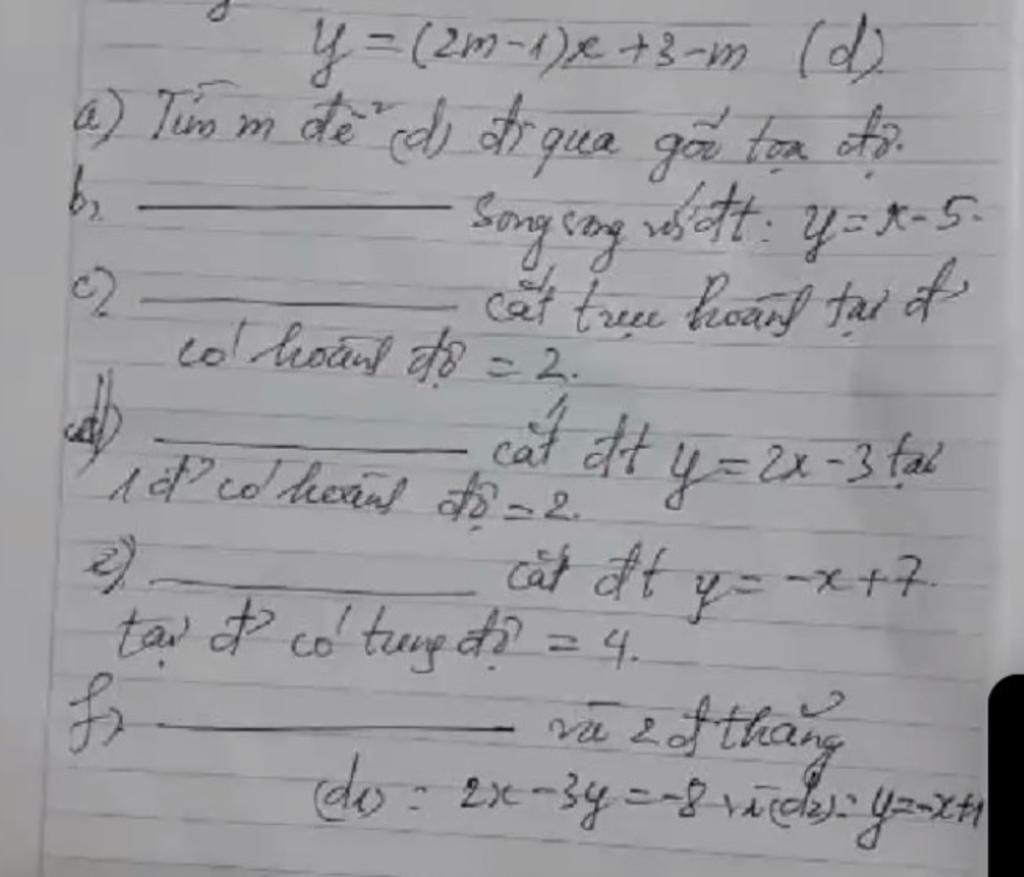 y = (2m-1)x + 3-m (d)
a) Tìm m để (d) đi qua gốc tọa độ.
b, ——— song song với đt: y = x - 5.
c) ——— cắt trục hoành tại đ'
có hoành độ = 2.
d) ——— cắt đt y = 2x - 3 tại
1 đ' có hoành độ = 2.
e) ——— cắt đt y = -x + 7.
tại đ' có tung độ = 4.
f, ——— và 2 đ thẳng
(d1) : 2x - 3y = -8 và (d2): y = -x+1